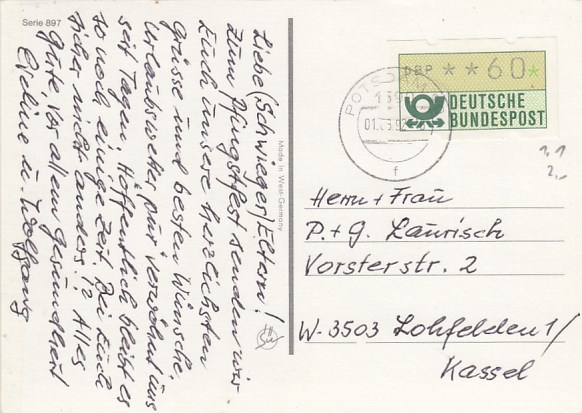 Serie 897
Liebe (Schwieger) Eltern!
Zum Pfingstfest senden wir
Euch unsere herzlichsten
Grüsse und besten Wünsche.
Urlaubswetter pur verwöhnt uns
seit Tagen, Hoffentlich bleibt es
so noch einige Zeit. Bei Euch
sicher nicht anders!? Alles
Gute vor allem Gesundheit
u Wolfgang
Made in West-Germany
DBP **60*
DEUTSCHE
BUNDESPOST
POTSD
f
1,1
2,-
Herrn + Frau
P. + G. Laurisch
Vorsterstr. 2
W-3503 Lohfelden 1/
Kassel